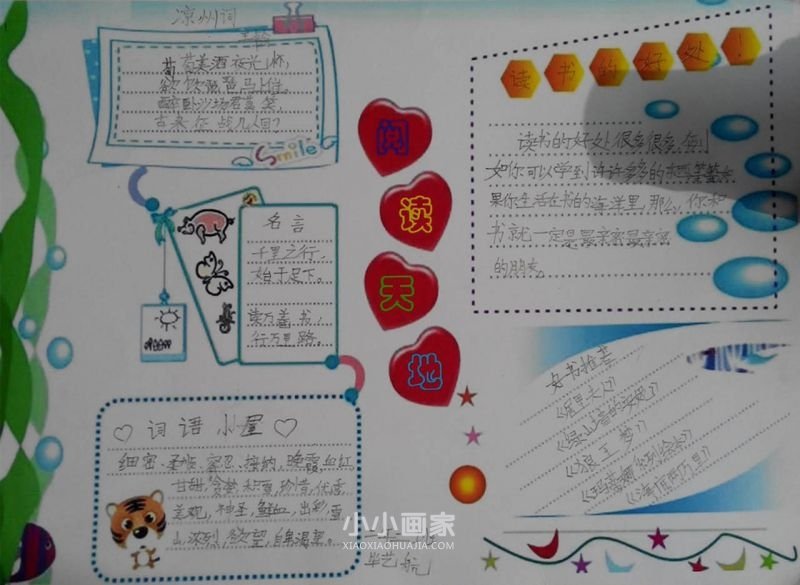 凉州词
葡萄美酒夜光杯,
欲饮琵琶马上催。
醉卧沙场君莫笑,
古来征战几人回?
Smile
名言
千里之行,
始于足下。
读万卷书,
行万里路。
词语小屋
细密、柔嫩、 接纳、晚霞、血红
甘甜、 积蓄、珍惜、优秀
美观、神圣、鲜血、出彩、
浓烈、欲望、自卑
阅
读
天
地
读书的好处!
读书的好处很多很多,每
如你可以学到许许多多的东西等等如
果你生活在书的海洋里,那么,你和
书就一定是最亲密最亲密
的朋友。
好书推荐
《绿山墙的安妮》
《狼王梦》
《海底两万里》
小小画家
XIAOXIAOHUAJIA.COM
毕艺航